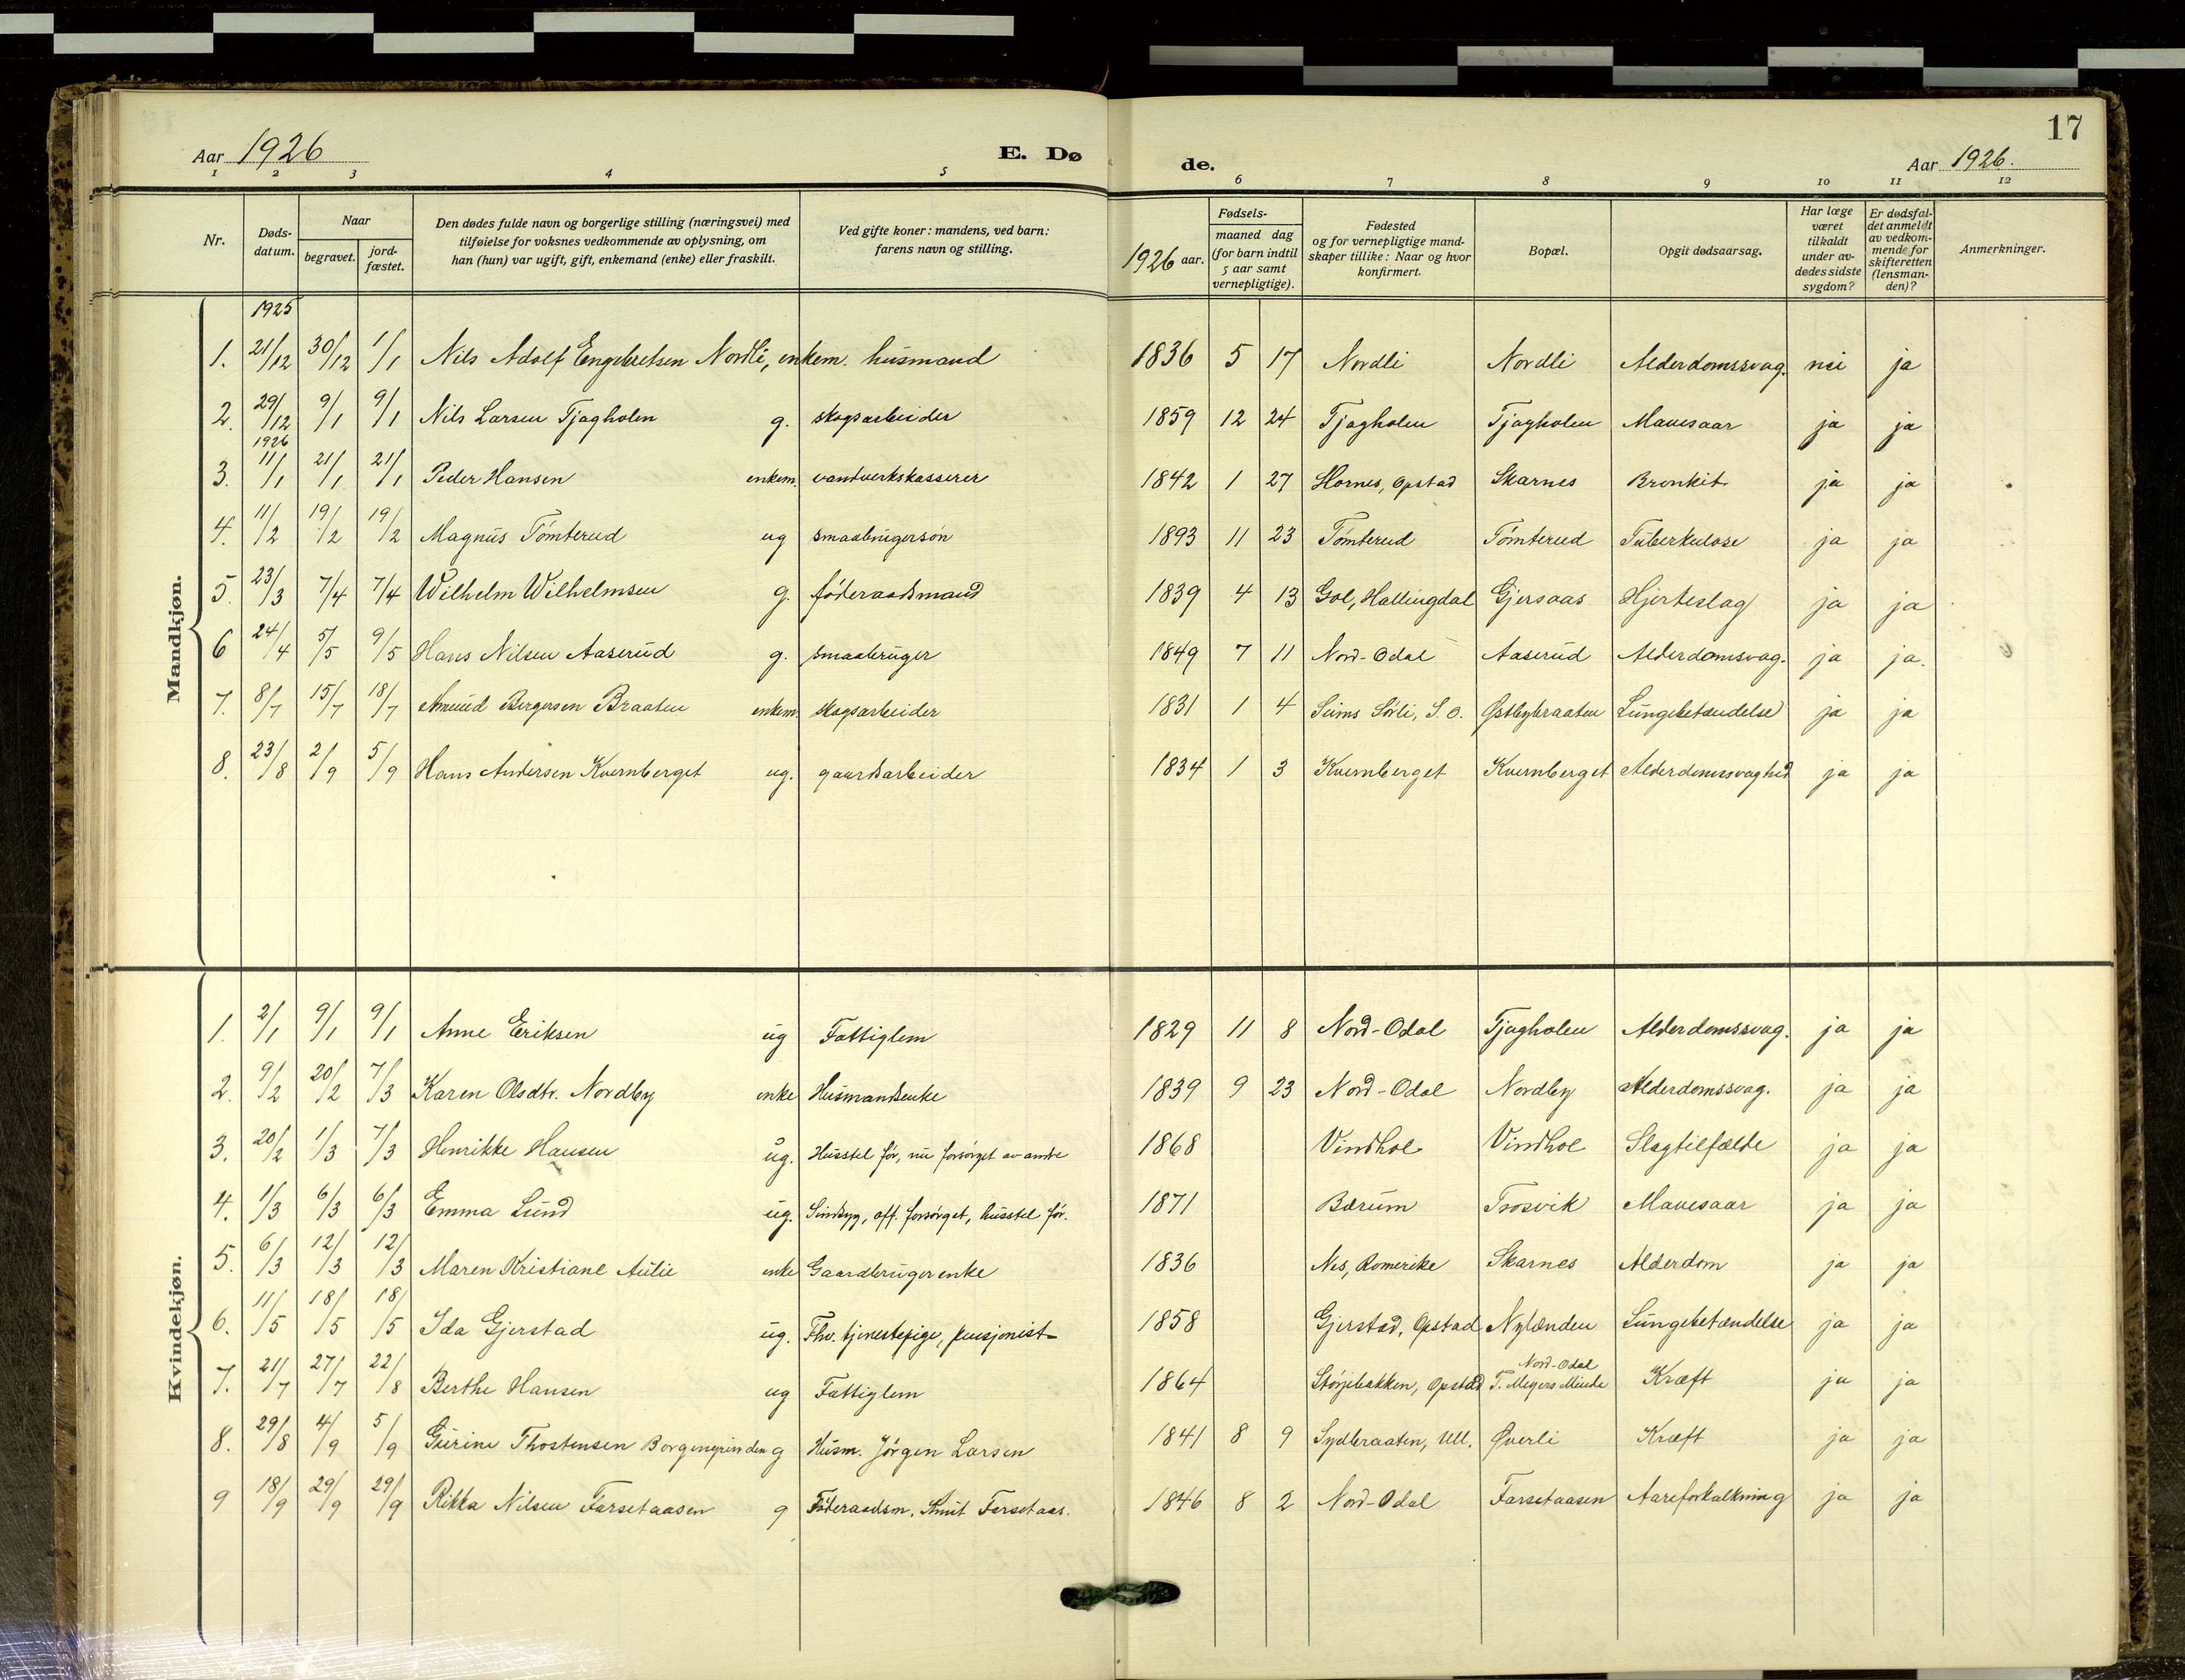 17
Aar 1926
E. Dø
de.
Aar 1926.
1 2 3 4 5 6 7 8 9 10 11 12
Nr.
Døds-
datum.
Naar
begravet.
jord-
fæstet.
Den dødes fulde navn og borgerlige stilling (næringsvei) med
tilføielse for voksnes vedkommende av oplysning, om
han (hun) var ugift, gift, enkemand (enke) eller fraskilt.
Ved gifte koner: mandens, ved barn:
farens navn og stilling.
1926 aar.
Fødsels-
maaned dag
(for barn indtil
5 aar samt
vernepligtige).
Fødested
og for vernepligtige mand-
skaper tillike: Naar og hvor
konfirmert.
Bopæl.
Opgit dødsaarsag.
Har læge
været
tilkaldt
under av-
dødes sidste
sygdom?
Er dødsfal-
det anmeldt
av vedkom-
mende for
skifteretten
(lensman-
den)?
Anmerkninger.
Mandkjøn.
1925
1. 21/12 30/12 1/1 Nils Adolf Engebretsen Nordli, enkem. husmand 1836 5 17 Nordli Nordli Alderdomssvag. nei ja
2. 29/12 9/1 9/1 Nils Larsen Tjagholen g. skogsarbeider 1859 12 24 Tjagholen Tjagholen Mavesaar ja ja
1926
3. 11/1 21/1 21/1 Peder Hansen enkem. vandverkskasserer 1842 1 27 Hornes, Opstad Skarnes Bronkit ja ja
4. 11/2 19/2 19/2 Magnus Tömterud ug smaabrugersön 1893 11 23 Tömterud Tömterud Tuberkulose ja ja
5. 23/3 7/4 7/4 Wilhelm Wilhelmsen g. föderaadsmand 1839 4 13 Gol, Hallingdal Gjersaas Hjerteslag ja ja
6 24/4 5/5 9/5 Hans Nilsen Aaserud g. smaabruger 1849 7 11 Nord-Odal Aaserud Alderdomsvag. ja ja.
7. 8/7 15/7 18/7 Amund Bergersen Braaten enkem. skogsarbeider 1831 1 4 Seims Sörli, S. O. Østbybraaten Lungebetændelse ja ja
8. 23/8 2/9 5/9 Hans Andersen Kvernberget ug. gaardsarbeider 1834 1 3 Kvernberget Kvernberget Alderdomssvaghed ja ja
Kvindekjøn.
1. 2/1 9/1 9/1 Anne Eriksen ug Fattiglem 1829 11 8 Nord-Odal Tjagholen Alderdomssvag. ja ja
2. 9/2 20/2 7/3 Karen Olsdtr. Nordby enke Husmandsenke 1839 9 23 Nord-Odal Nordby Alderdomssvag. ja ja
3. 20/2 1/3 7/3 Henrikke Hansen ug. Husstel för, nu forsörget av andre 1868 Vindhol Vindhol Slagtilfælde ja ja
4. 1/3 6/3 6/3 Emma Lund ug. Sindsyg, off. forsörget, husstel för. 1871 Bærum Trosvik Mavesaar ja ja
5. 6/3 12/3 12/3 Maren Kristiane Aulie enke Gaardbrugerenke 1836 Nes, Romerike Skarnes Alderdom ja ja
6. 11/5 18/5 18/5 Ida Gjerstad ug. Fhv. tjenestepige, pensjonist 1858 Gjerstad, Opstad Nylænden Lungebetændelse ja ja
7. 21/7 27/7 22/8 Berthe Hansen ug Fattiglem 1864 Störjebakken, Opstad Nord-Odal T. Meyers Minde Kræft ja ja
8. 29/8 4/9 5/9 Gurine Thostensen Borgengrinden g Husm. Jörgen Larsen 1841 8 9 Sydbraaten, Ull. Øverli Kræft ja ja
9 18/9 29/9 29/9 Rikka Nilsen Farsetaasen g Föderaadsm. Knut Farsetaas. 1846 8 2 Nord-Odal Farsetaasen Aareforkalkning ja ja